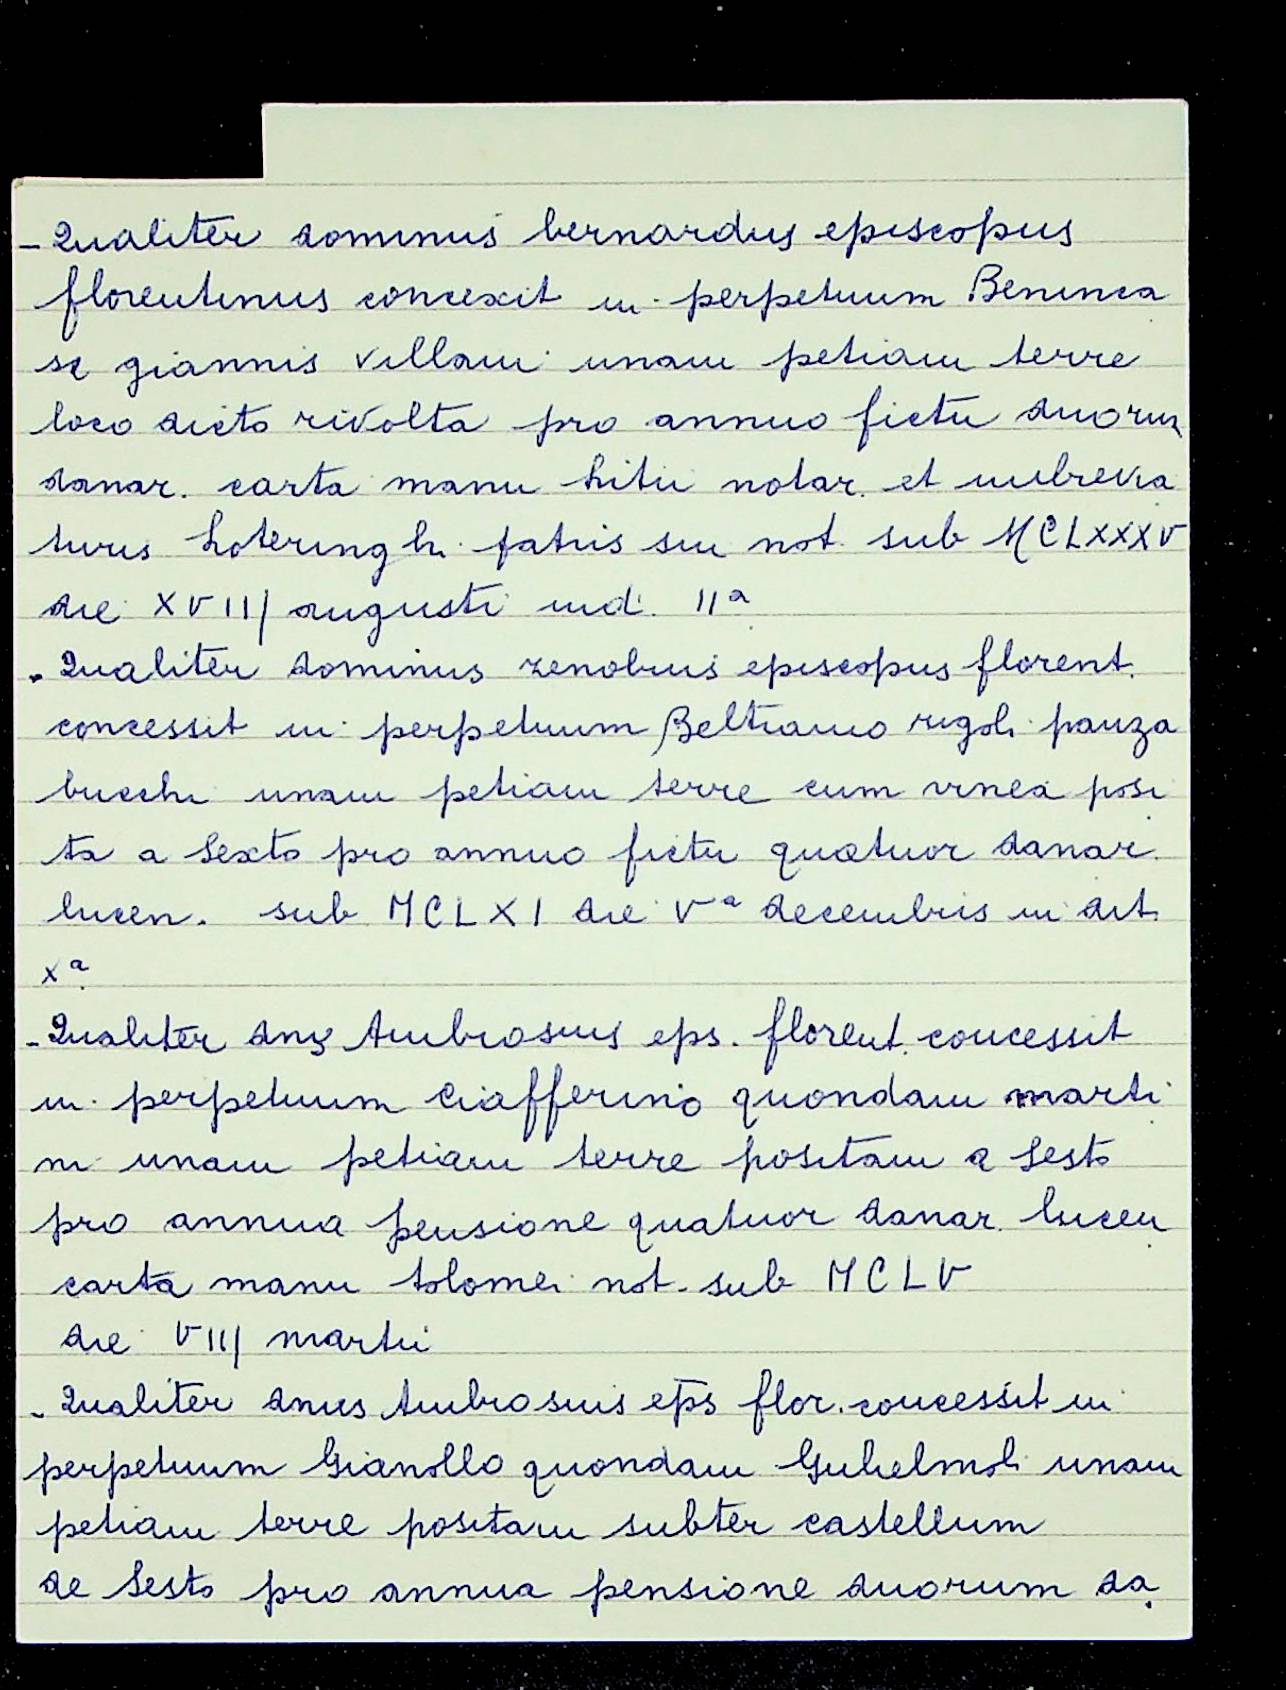 - Qualiter dominus bernardus episcopus
florentinus concexit in perpetuum Beninca
se giannis villani unam petiam terre
loco dicto rivolta pro annuo fictu duorum
danar. carta manu hitii notar. et imbrevia
turis loteringhi fatris sui not. sub MCLXXXV
die XVIII augusti ind. IIª
- Qualiter dominus zenobius episcopus florent.
concessit in perpetuum Beltramo rigoli panza
bucchi unam petiam terre cum vinea posi
ta a Sexto pro annuo fictu quatuor danar.
lucen. sub MCLXI die Vª decembris in dit.
Xª
- Qualiter dns Ambrosius eps. florent. concessit
in perpetuum Ciafferino quondam marti
ni unam petiam terre positam a Sesto
pro annua pensione quatuor danar. lucen
carta manu tolomei not. sub MCLV
die VIII martii
- Qualiter dnus Ambrosius eps flor. concessit in
perpetuum Gianollo quondam Gulielmoli unam
petiam terre positam subter castellum
de Sesto pro annua pensione duorum da